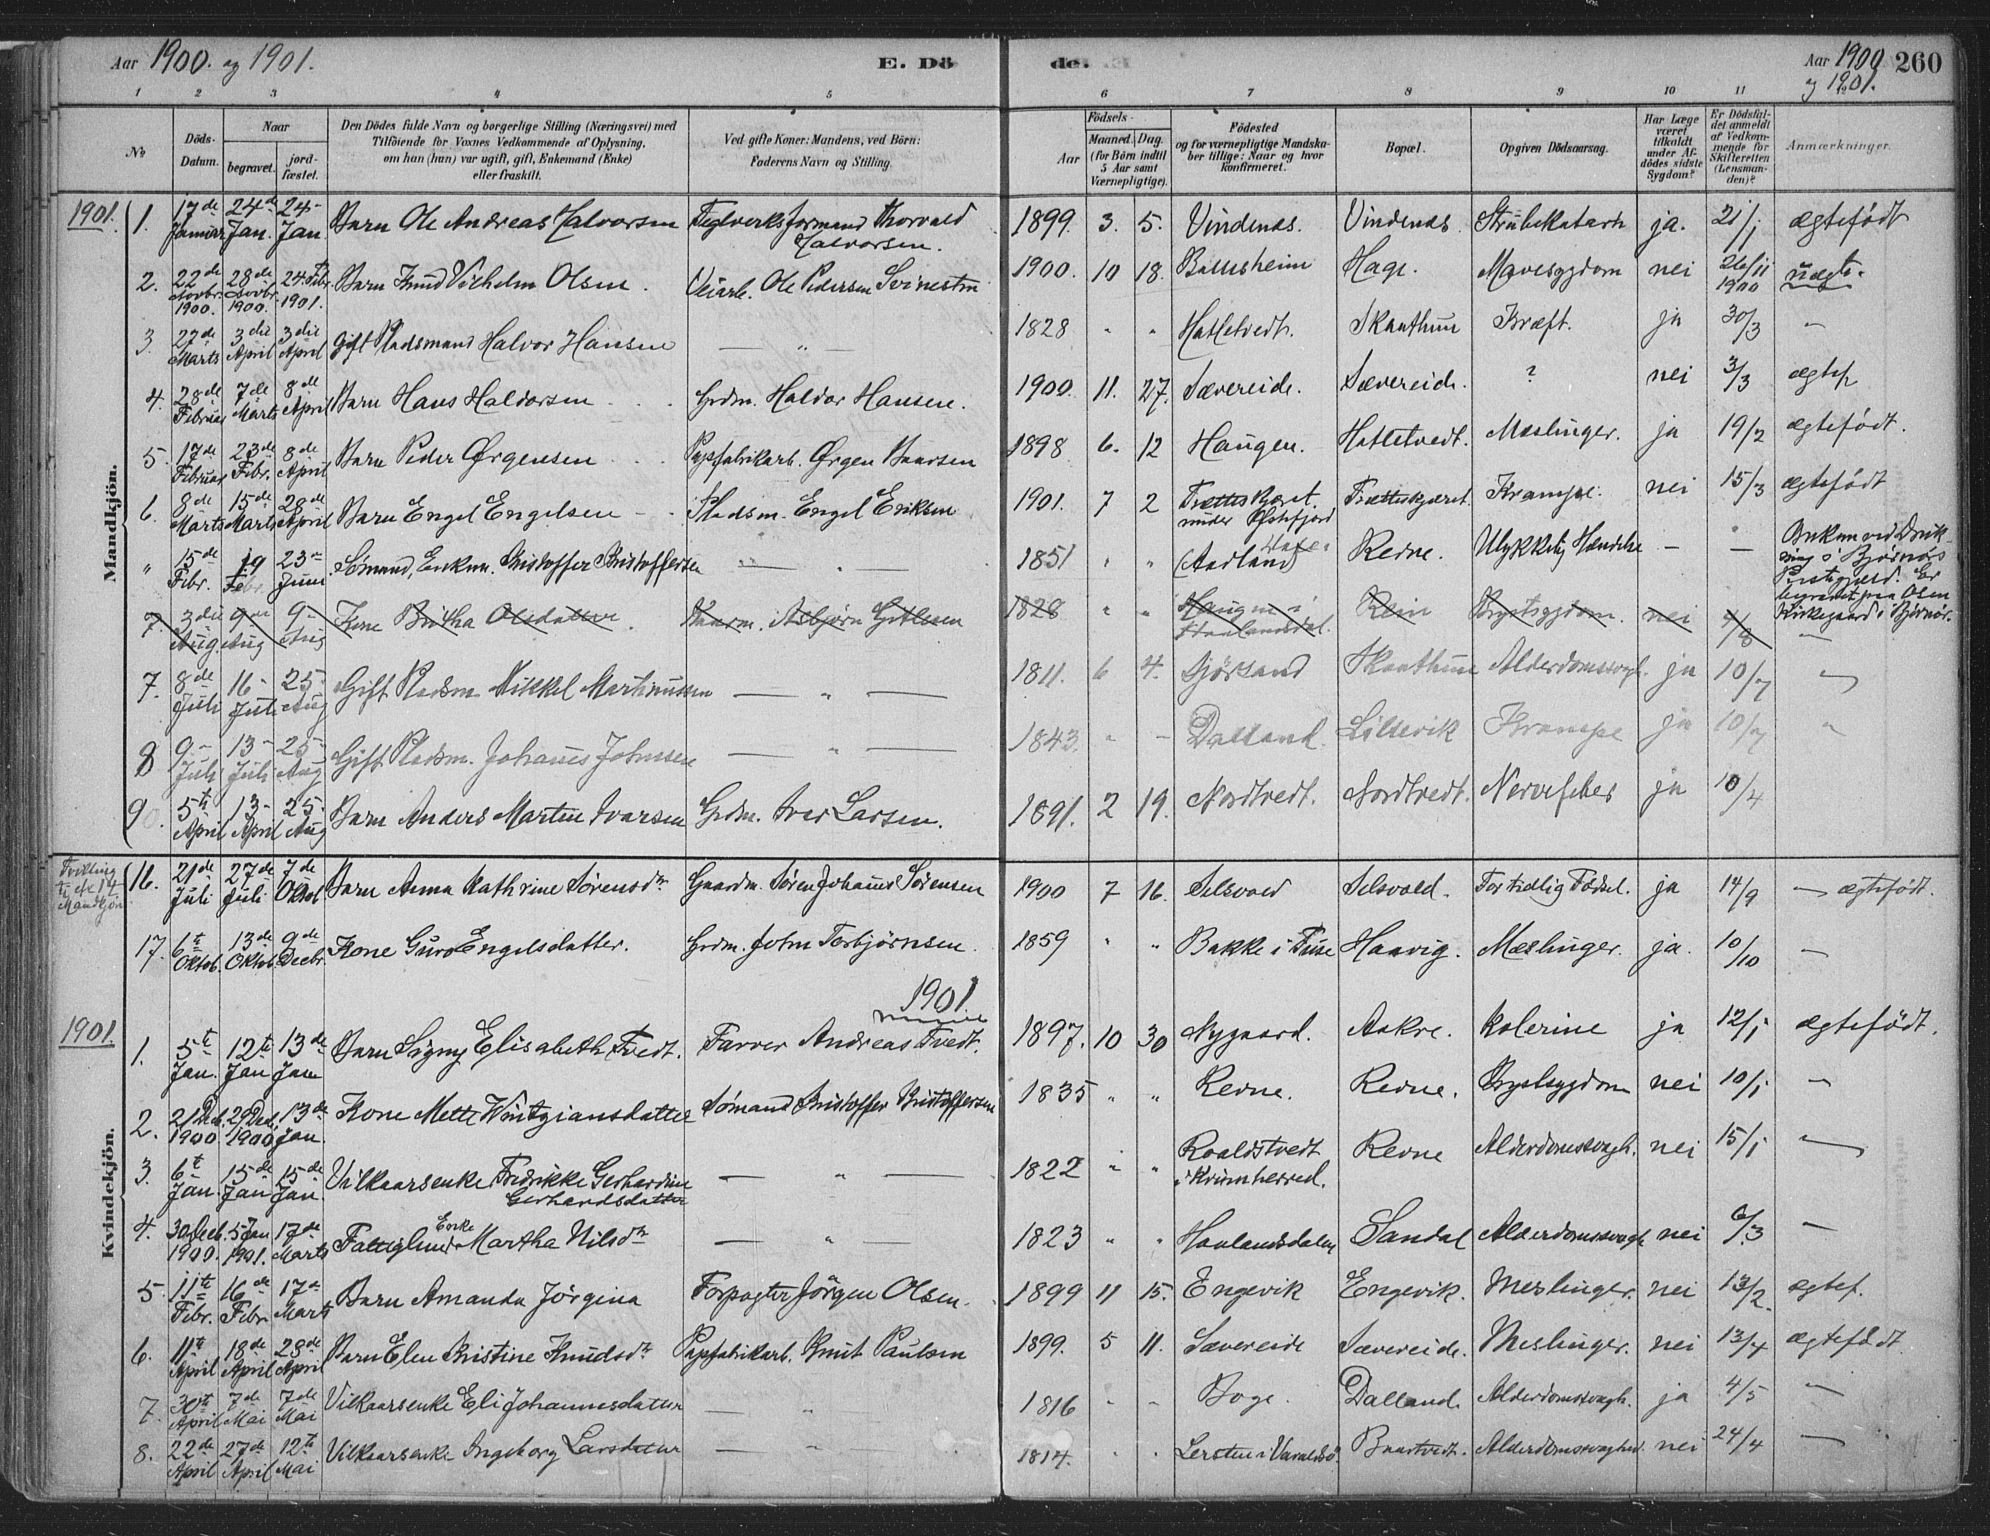 Aar 1900. og 1901.
E. Dö
de.
Aar 1900 260
og 1901.
1 2 3 4 5 6 7 8 9 10 11 12
№
Döds-
Datum.
Naar
begravet.
jord-
fæstet.
Den Dödes fulde Navn og borgerlige Stilling (Næringsvei) med
Tilföiende for Voxnes Vedkommende af Oplysning,
om han (hun) var ugift, gift, Enkemand (Enke)
eller fraskilt.
Ved gifte Koner: Mandens, ved Börn:
Faderens Navn og Stilling.
Födsels-
Aar
Maaned. Dag.
(for Börn indtil
5 Aar samt
Værnepligtige).
Födested
og for værnepligtige Mandska-
ber tillige: Naar og hvor
konfirmeret.
Bopæl.
Opgiven Dödsaarsag.
Har Læge
været
tilkaldt
under Af-
dödes sidste
Sygdom?
Er Dödsfal-
det anmeldt
af Vedkom-
mende for
Skifteretten
(Lensman-
den)?
Anmærkninger.
Mandkjön.
1901. 1. 17de Januar 24de Jan. 24- Jan Barn Ole Andreas Halvorsen Teglverksformand Thorvald Halvorsen. 1899. 3. 5. Vindenæs. Vindenæs. Strubekatarh ja. 21/1 ægtefödt
2. 22de Novbr. 1900. 28de Novbr. 1900. 24. Febr. 1901. Barn Knud Vilhelm Olsen. Veiarb. Ole Pedersen 1900. 10 18. Hage. Mavesygdom nei 26/11 1900 uægte.
3. 27de Marts 3die April 3die April Gift Pladsmand Halvor Hansen — " — 1828 " " Hatletvedt. Skaathun Kræft. ja 30/3 —
4. 28de Februar 7de Marts 8de April Barn Hans Haldorsen Grdm. Haldor Hansen. 1900. 11. 27. Sævereide. Sævereide. ? nei 3/3 ægtef
5. 17de Februar 23de Febr. 8de April Barn Peder Ørgensen Papfabrikarb. Ørgen Baarsen 1898 6. 12 Haugen. Hatletvedt. Mæslinger. ja 19/2 ægtefödt.
6. 8de Marts 15de Marts 28de April Barn Engel Engelsen Pladsm. Engel Eriksen 1901. 7 2 Trætteskjæret under Østefjord Trætteskjæret. Krampe. nei 15/3 ægtefödt
" 15de Febr. 19 Febr. 23de Juni Sømand, Enkem. Kristoffer Kristoffersen — " — 1851 " " (Aadland) Revne. Ulykkelig Hændelse — — Omkom ved Druk- ning i Bjørnør Præstegjæld. Er begravet paa Osen Kirkegaard i Bjørnør.
7. 3die Aug. 9de Aug 9- Aug Kone Britha Olsdatter. Asbjørn Gitlesen 1828 " " Haugen i Haalandsdal. Rein Brystsygdom. nei 4/8 —
7. 8de Juli 16- Juli 25- Aug Gift Pladsm. Mikkel Martinussen — " — 1811. 6 4. Sjösand Skaathun Alderdomssvagh. ja 10/7 —
8 9.- Juli 13- Juli 25- Aug Gift Pladsm. Johannes Johnsen — " — 1843. " - Dalland. Lillevik Krampe ja 10/7 "
9. 5te April 13- April 25- Aug Barn Anders Martin Ivarsen Grdm. Iver Larsen. 1891. 2 19. Nordtvedt. Nordtvedt. Nervefeber ja 10/4
Kvindekjön.
Tvilling til № 14 Mandkjön
16. 21de Juli 27de Juli 7de Oktob. Barn Anna Kathrine Sørensdtr Gaardm. Søren Johannes Sørensen 1900 7 16. Selsvold Selsvold. For tidlig Födsel. ja 14/9 — ægtefödt.
17. 6te Oktob. 13de Oktob. 9de Decbr. Kone Guro Engelsdatter. Grdm. John Torbjørnsen. 1859 " " Bakke i Fuse Haavig. Mæslinger. ja. 10/10 —
1901.
1901. 1. 5te Jan. 12te Jan 13de Jan Barn Signy Elisabeth Tvedt. Farver Andreas Tvedt. 1897. 10 30 Nygaard. Aakre. Kolerine ja 12/1 ægtefödt.
2. 21 Dec. 1900. 29 Dec. 1900 13de Jan. Kone Mette Sømand Kristoffer Kristoffersen 1835 " " Revne. Revne. Brystsygdom nei 10/1 —
3. 6te Jan. 15de Jan 15de Jan. Vilkaarsenke Fredrikke Gerhardine Gerhardsdatter — " — 1822 " " Roaldstvedt i Kvinnherred. Revne Alderdomssvagh. nei 15/1 —
4. 30 Decb. 1900. 5 Jan 1901. 17de Marts Fattiglem Enke Martha Nilsdtr — " — 1823 " " Haalandsdalen Sandal Alderdomssvagh nei 6/3 —
5. 11te Febr. 16de Febr. 17de Marts Barn Amanda Jörgina Forpagter Jörgen Olsen. 1899 11 15. Engevik Engevik. Meslinger. nei 13/2. ægtef.
6. 11te April 18de April 28de April Barn Elen Kristine Knudsdtr Papfabrikarb. Knut Paulsen 1899. 5 11. Sævereide Sævereide. Meslinger. nei 13/4 ægtefödt
7. 30te April 7de Mai 7de Mai Vilkaarsenke Eli Johannesdatter — " 1816 " - Boge. Dalland. Alderdomssvagh. ja 4/5 —
8. 22de April 27de April 12te Mai Vilkaarsenke Ingeborg Larsdatter — " — 1814. " " i Varaldsö. Baartvedt. Alderdomssvaghed nei 24/4 —